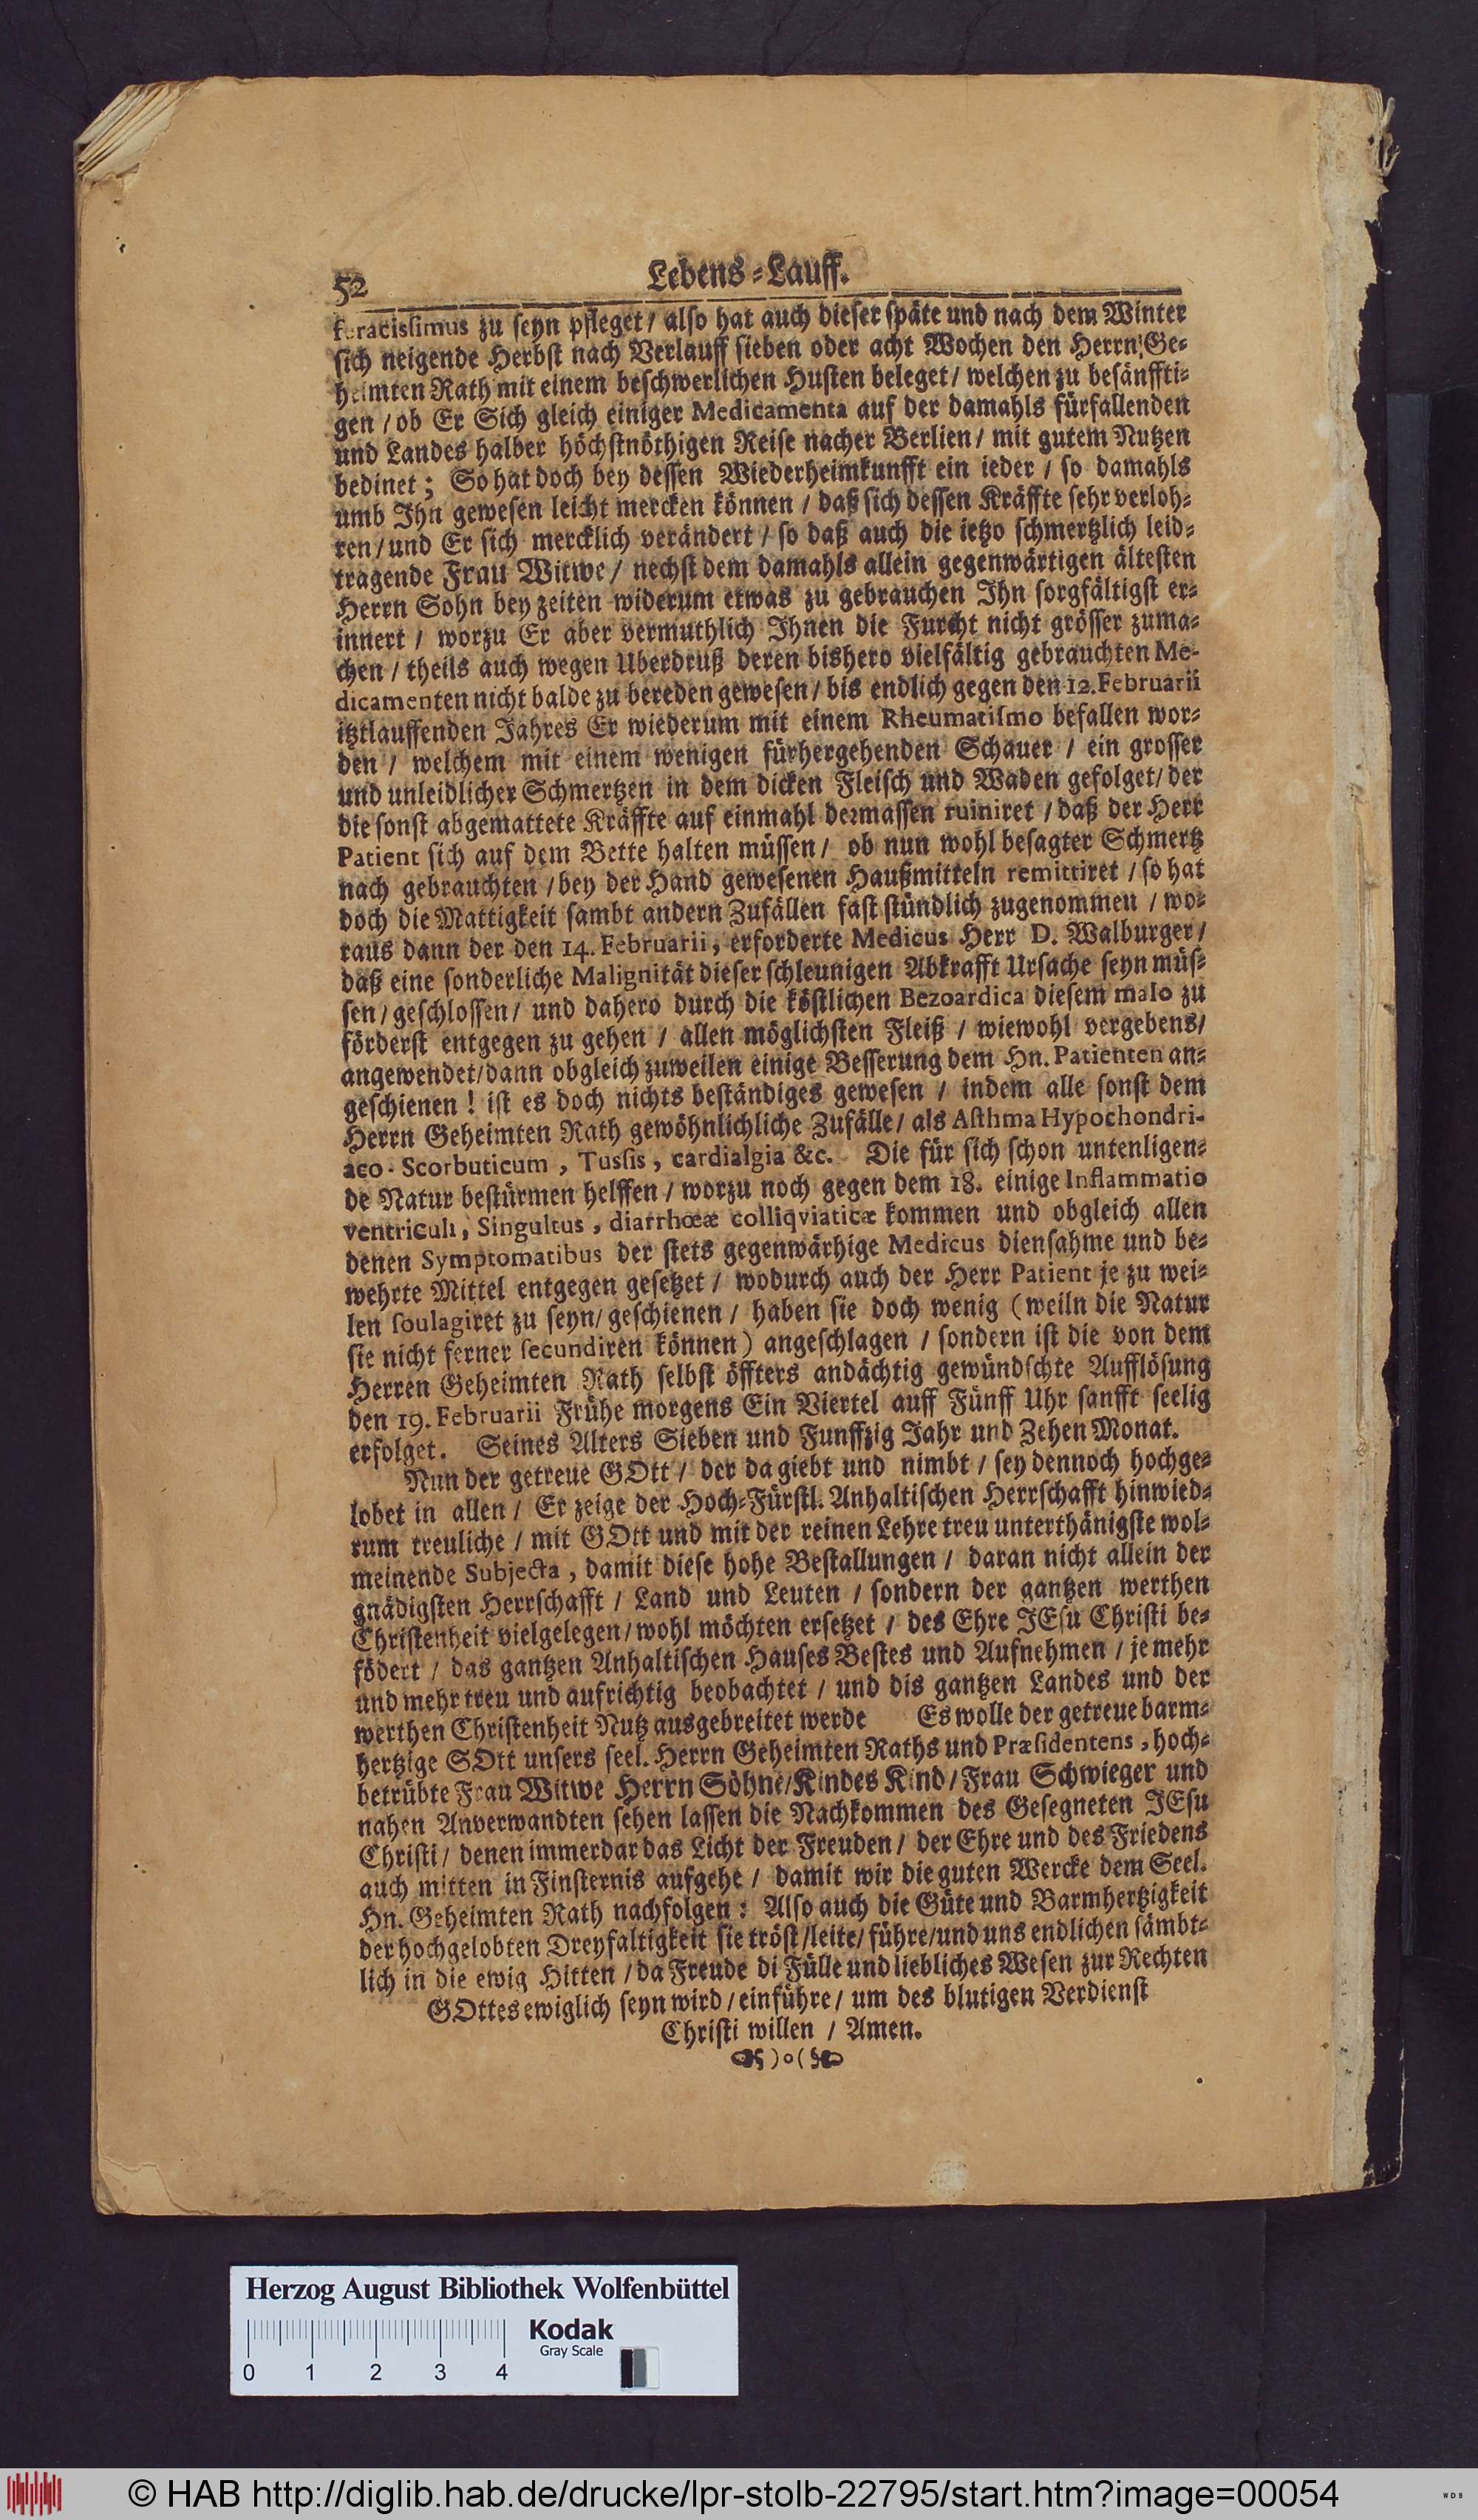 52
Lebens-Lauff.
feracissimus zu seyn pfleget/ also hat auch dieser späte und nach dem Winter
sich neigende Herbst nach Verlauff sieben oder acht Wochen den Herrn Ge-
heimten Rath mit einem beschwerlichen Husten beleget/ welchen zu besänffti-
gen / ob Er Sich gleich einiger Medicamenta auf der damahls fürfallenden
und Landes halber höchstnöthigen Reise nacher Berlien/ mit gutem Nutzen
bedinet; So hat doch bey dessen Wiederheimkunfft ein ieder / so damahls
umb Ihn gewesen leicht mercken können / daß sich dessen Kräffte sehr verloh-
ren/und Er sich mercklich verändert / so daß auch die ietzo schmertzlich leid-
tragende Frau Witwe/ nechst dem damahls allein gegenwärtigen ältesten
Herrn Sohn bey zeiten widerum etwas zu gebrauchen Ihn sorgfältigst er-
innert / worzu Er aber vermuthlich Ihnen die Furcht nicht grösser zuma-
chen / theils auch wegen Uberdruß deren bishero vielfältig gebrauchten Me-
dicamenten nicht balde zu bereden gewesen/ bis endlich gegen den 12. Februarii
itztlauffenden Jahres Er wiederum mit einem Rheumatismo befallen wor-
den / welchem mit einem wenigen fürhergehenden Schauer / ein grosser
und unleidlicher Schmertzen in dem dicken Fleisch und Waden gefolget/ der
die sonst abgemattete Kräffte auf einmahl dermassen ruiniret / daß der Herr
Patient sich auf dem Bette halten müssen/ ob nun wohl besagter Schmertz
nach gebrauchten / bey der Hand gewesenen Haußmitteln remittiret / so hat
doch die Mattigkeit sambt andern Zufällen fast stündlich zugenommen / wo-
raus dann der den 14. Februarii, erforderte Medicus Herr D. Walburger/
daß eine sonderliche Malignität dieser schleunigen Abkrafft Ursache seyn müs-
sen/ geschlossen/ und dahero durch die köstlichen Bezoardica diesem malo zu
förderst entgegen zu gehen / allen möglichsten Fleiß / wiewohl vergebens/
angewendet/dann obgleich zuweilen einige Besserung dem Hn. Patienten an-
geschienen ! ist es doch nichts beständiges gewesen / indem alle sonst dem
Herrn Geheimten Rath gewöhnlichliche Zufälle/ als Asthma Hypochondri-
aco-Scorbuticum, Tussis, cardialgia &c. Die für sich schon untenligen-
de Natur bestürmen helffen / worzu noch gegen dem 18. einige Inflammatio
ventriculi, Singultus, diarrhœæ colliqviaticæ kommen und obgleich allen
denen Symptomatibus der stets gegenwärhige Medicus diensahme und be-
wehrte Mittel entgegen gesetzet / wodurch auch der Herr Patient je zu wei-
len soulagiret zu seyn/ geschienen / haben sie doch wenig (weiln die Natur
sie nicht ferner secundiren können) angeschlagen / sondern ist die von dem
Herren Geheimten Rath selbst öffters andächtig gewündschte Aufflösung
den 19. Februarii Frühe morgens Ein Viertel auff Fünff Uhr sanfft seelig
erfolget. Seines Alters Sieben und Funffzig Jahr und Zehen Monat.
Nun der getreue GOtt / der da giebt und nimbt / sey dennoch hochge-
lobet in allen / Er zeige der Hoch-Fürstl. Anhaltischen Herrschafft hinwied-
rum treuliche / mit GOtt und mit der reinen Lehre treu unterthänigste wol-
meinende Subjecta, damit diese hohe Bestallungen / daran nicht allein der
gnädigsten Herrschafft / Land und Leuten / sondern der gantzen werthen
Christenheit vielgelegen/wohl möchten ersetzet / des Ehre JEsu Christi be-
födert / das gantzen Anhaltischen Hauses Bestes und Aufnehmen / je mehr
und mehr treu und aufrichtig beobachtet / und dis gantzen Landes und der
werthen Christenheit Nutz ausgebreitet werde Es wolle der getreue barm-
hertzige GOtt unsers seel. Herrn Geheimten Raths und Præsidentens, hoch-
betrübte Frau Witwe Herrn Söhne/Kindes Kind/Frau Schwieger und
nahen Anverwandten sehen lassen die Nachkommen des Gesegneten JEsu
Christi/ denen immerdar das Licht der Freuden/ der Ehre und des Friedens
auch mitten in Finsternis aufgehe / damit wir die guten Wercke dem Seel.
Hn. Geheimten Rath nachfolgen: Also auch die Güte und Barmhertzigkeit
der hochgelobten Dreyfaltigkeit sie tröst/leite/ führe/und uns endlichen sämbt-
lich in die ewig Hitten / da Freude di Fülle und liebliches Wesen zur Rechten
GOttes ewiglich seyn wird / einführe / um des blutigen Verdienst
Christi willen / Amen.
Herzog August Bibliothek Wolfenbüttel
Kodak
Gray Scale
0 1 2 3 4
© HAB http://diglib.hab.de/drucke/lpr-stolb-22795/start.htm?image=00054
WDB